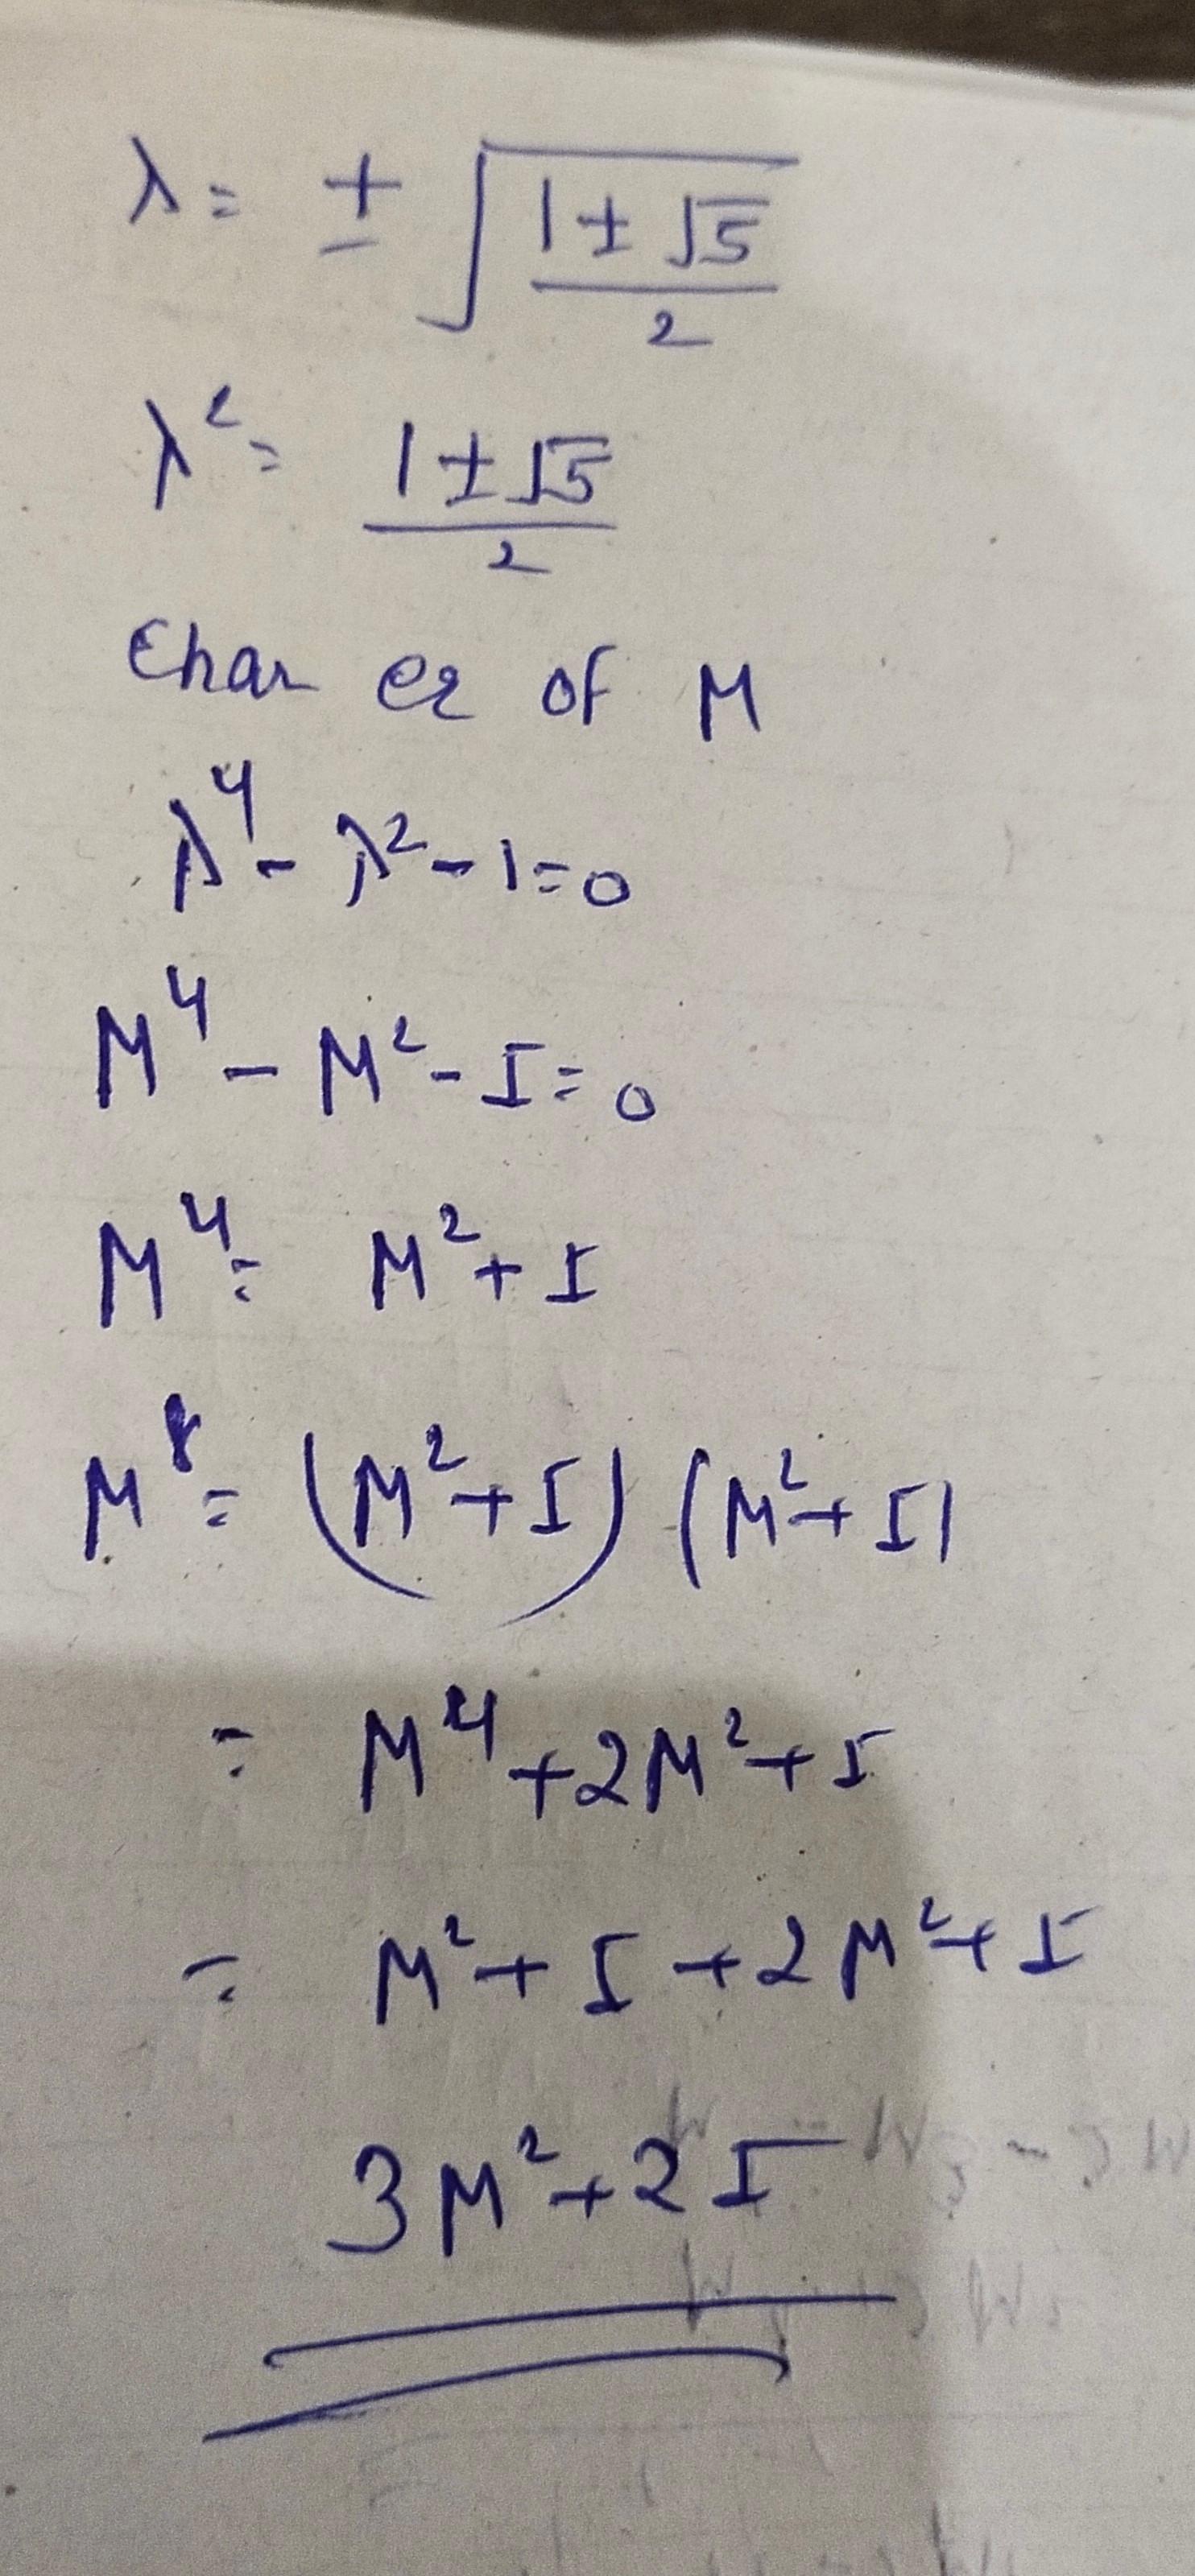 λ = ± √((1 ± √5)/2)
λ² = (1 ± √5)/2
Char eq of M
λ⁴ - λ² - 1 = 0
M⁴ - M² - I = 0
M⁴ = M² + I
M⁸ = (M² + I) (M² + I)
= M⁴ + 2M² + I
= M² + I + 2M² + I
3M² + 2I